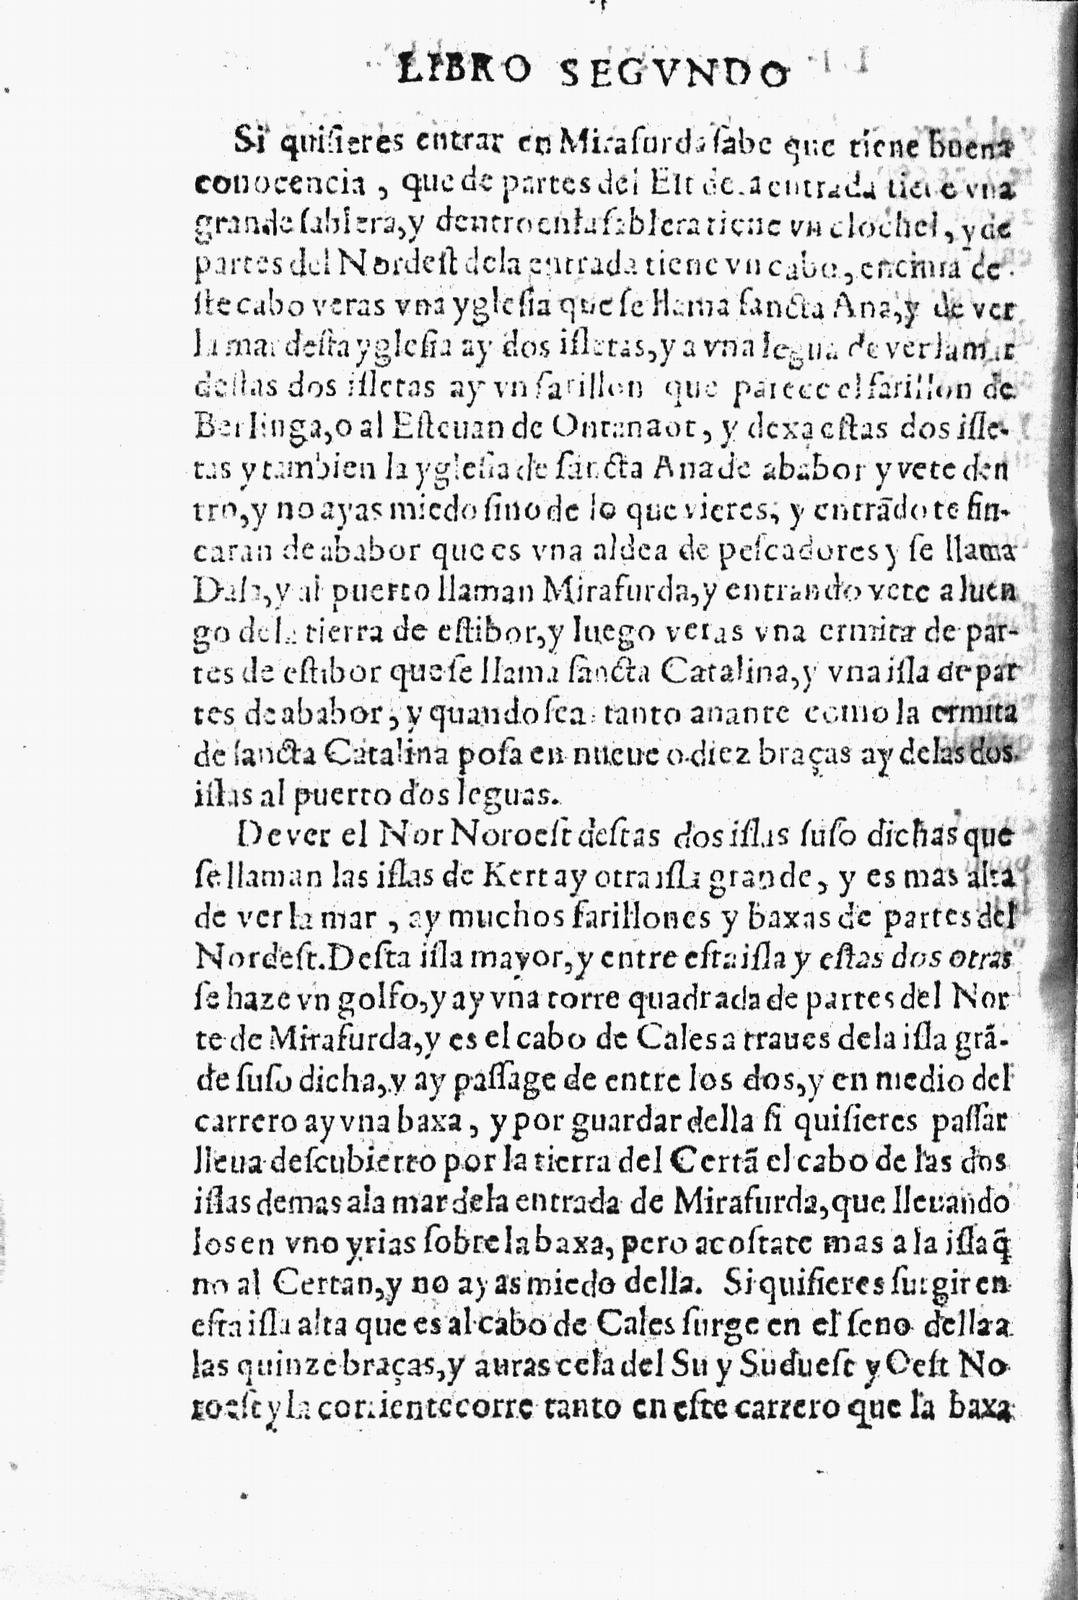 LIBRO SEGVNDO
Si quiſieres entrar en Mirafurda ſabe que tiene buena
conocencia, que de partes del Eſt de la entrada tiene vna
grande ſablera, y dentro en la ſablera tiene vn clochel, y de
partes del Nordeſt de la entrada tiene vn cabo, encima de
ſte cabo veras vna ygleſia que ſe llama ſancta Ana, y de ver
la mar deſta ygleſia ay dos iſletas, y a vna legua de ver la mar
deſtas dos iſletas ay vn farillon que parece el farillon de
Berlinga, o al Eſteuan de Ontanaot, y dexa eſtas dos iſle-
tas y tambien la ygleſia de ſancta Ana de ababor y vete den
tro, y no ayas miedo ſino de lo que vieres, y entrãdo te fin-
caran de ababor que es vna aldea de peſcadores y ſe llama
y al puerto llaman Mirafurda, y entrando vete a luen
go de la tierra de eſtibor, y luego veras vna ermita de par-
tes de eſtibor que ſe llama ſancta Catalina, y vna iſla de par
tes de ababor, y quando ſea tanto auante como la ermita
de ſancta Catalina poſa en nueue o diez braças ay de las dos
iſlas al puerto dos leguas.
De ver el Nor Noroeſt deſtas dos iſlas ſuſo dichas que
ſe llaman las iſlas de Kert ay otra iſla grande, y es mas alta
de ver la mar, ay muchos farillones y baxas de partes del
Nordeſt. Deſta iſla mayor, y entre eſta iſla y eſtas dos otras
ſe haze vn golfo, y ay vna torre quadrada de partes del Nor
te de Mirafurda, y es el cabo de Cales a traues de la iſla grã-
de ſuſo dicha, y ay paſſage de entre los dos, y en medio del
carrero ay vna baxa, y por guardar della ſi quiſieres paſſar
lleua deſcubierto por la tierra del Certã el cabo de las dos
iſlas demas a la mar de la entrada de Mirafurda, que lleuando
los en vno yrias ſobre la baxa, pero acoſtate mas a la iſla q̃
no al Certan, y no ayas miedo della. Si quiſieres ſurgir en
eſta iſla alta que es al cabo de Cales ſurge en el ſeno della a
las quinze braças, y auras cela del Su y Sudueſt y Oeſt No
roeſt y la corriente corre tanto en eſte carrero que la baxa